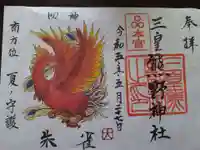 奉拝
三皇熊野神社
令和五年五月二十七日
四神
朱雀
南方位 夏ノ守護